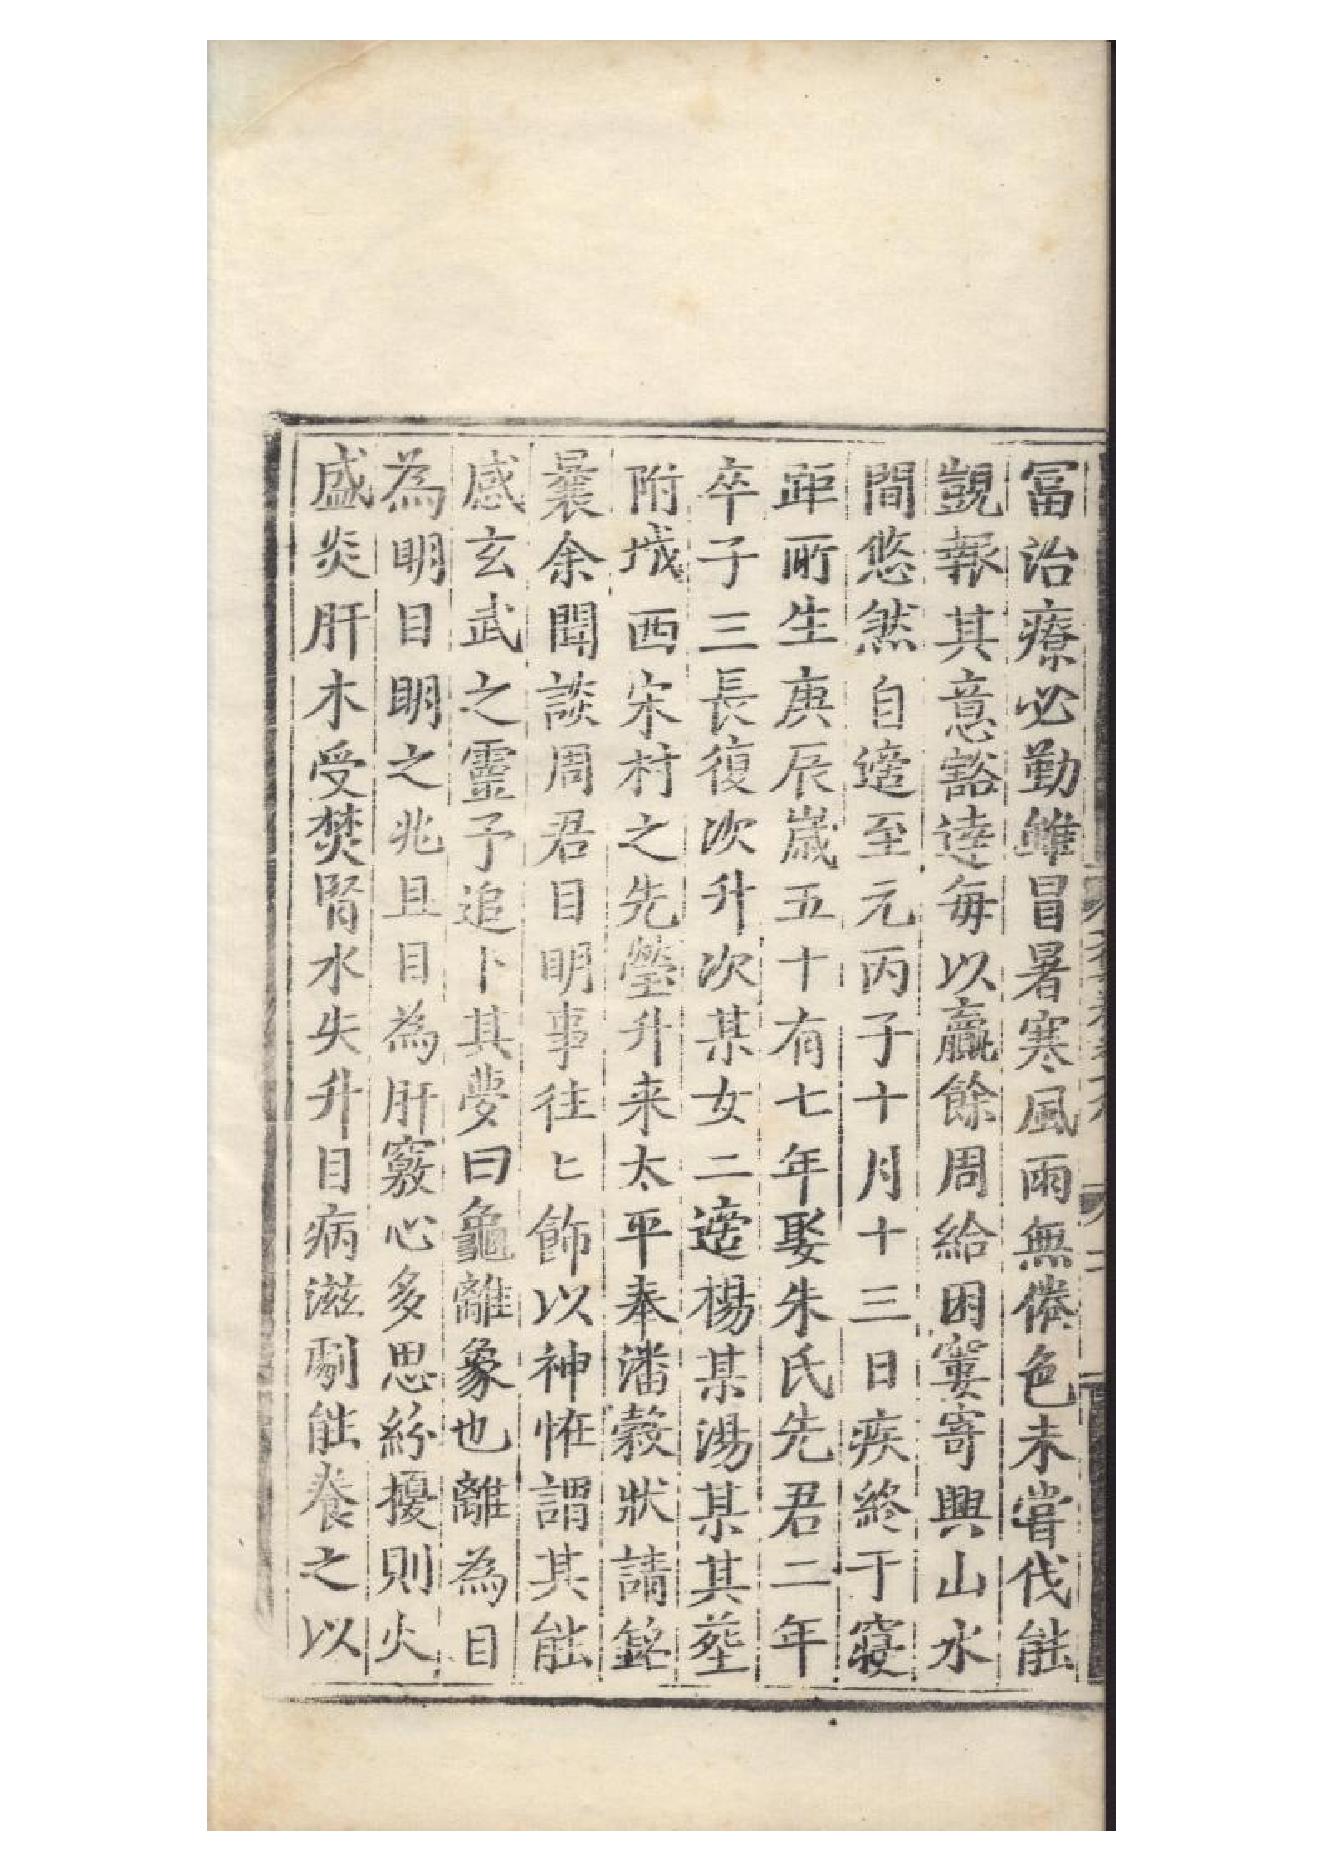 冨治療必勤雖冒暑寒風雨無倦色未嘗伐能
覬報其意豁達每以贏餘周給困寠寄興山水
間悠然自適至元丙子十月十三日疾終于寢
距所生庚辰歲五十有七年娶朱氏先君二年
卒子三長復次升次某女二適楊某湯某其塟
附城西宋村之先塋升来太平奉潘穀狀請銘
曩余聞談周君目明事往〻飾以神恠謂其能
感玄武之靈予追卜其夢曰龜離象也離為目
為明目明之兆且目為肝竅心多思紛擾則火
盛炎肝木受焚腎水失升目病滋劇能養之以